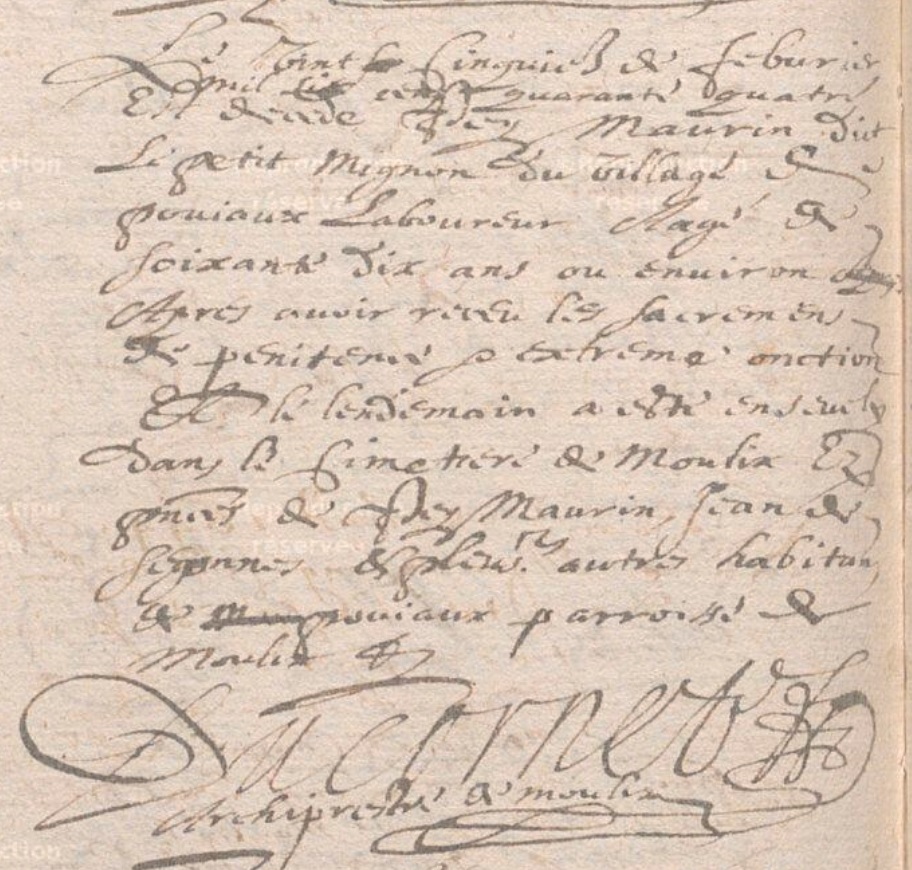 Le vint Cinquies de feburier
mil six cens quarante quatre
Est decede Maurin dit
Le petit Mignon du village de
pouiaux Laboureur Aagé de
soixante dix ans ou environ
Apres auoir receu les sacremens
de penitence & extreme onction
Et le lendemain a esté enseuely
dans le Cimetiere de Moulix Ez
pnces de Maurin, Jean de
& pleurs autres habitans
de pouiaux parroisse de
Moulix &
Ducornet
Archiprestre de moulix